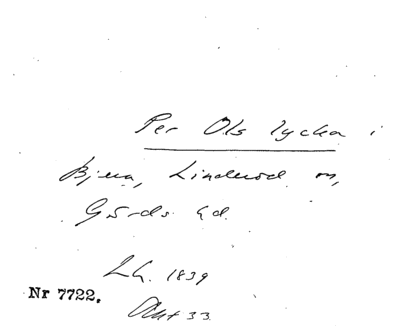 Per Ols lycka i
Bjära, Linderöd sn,
Gärds hd.
LG. 1839
Nr 7722.
Akt 33